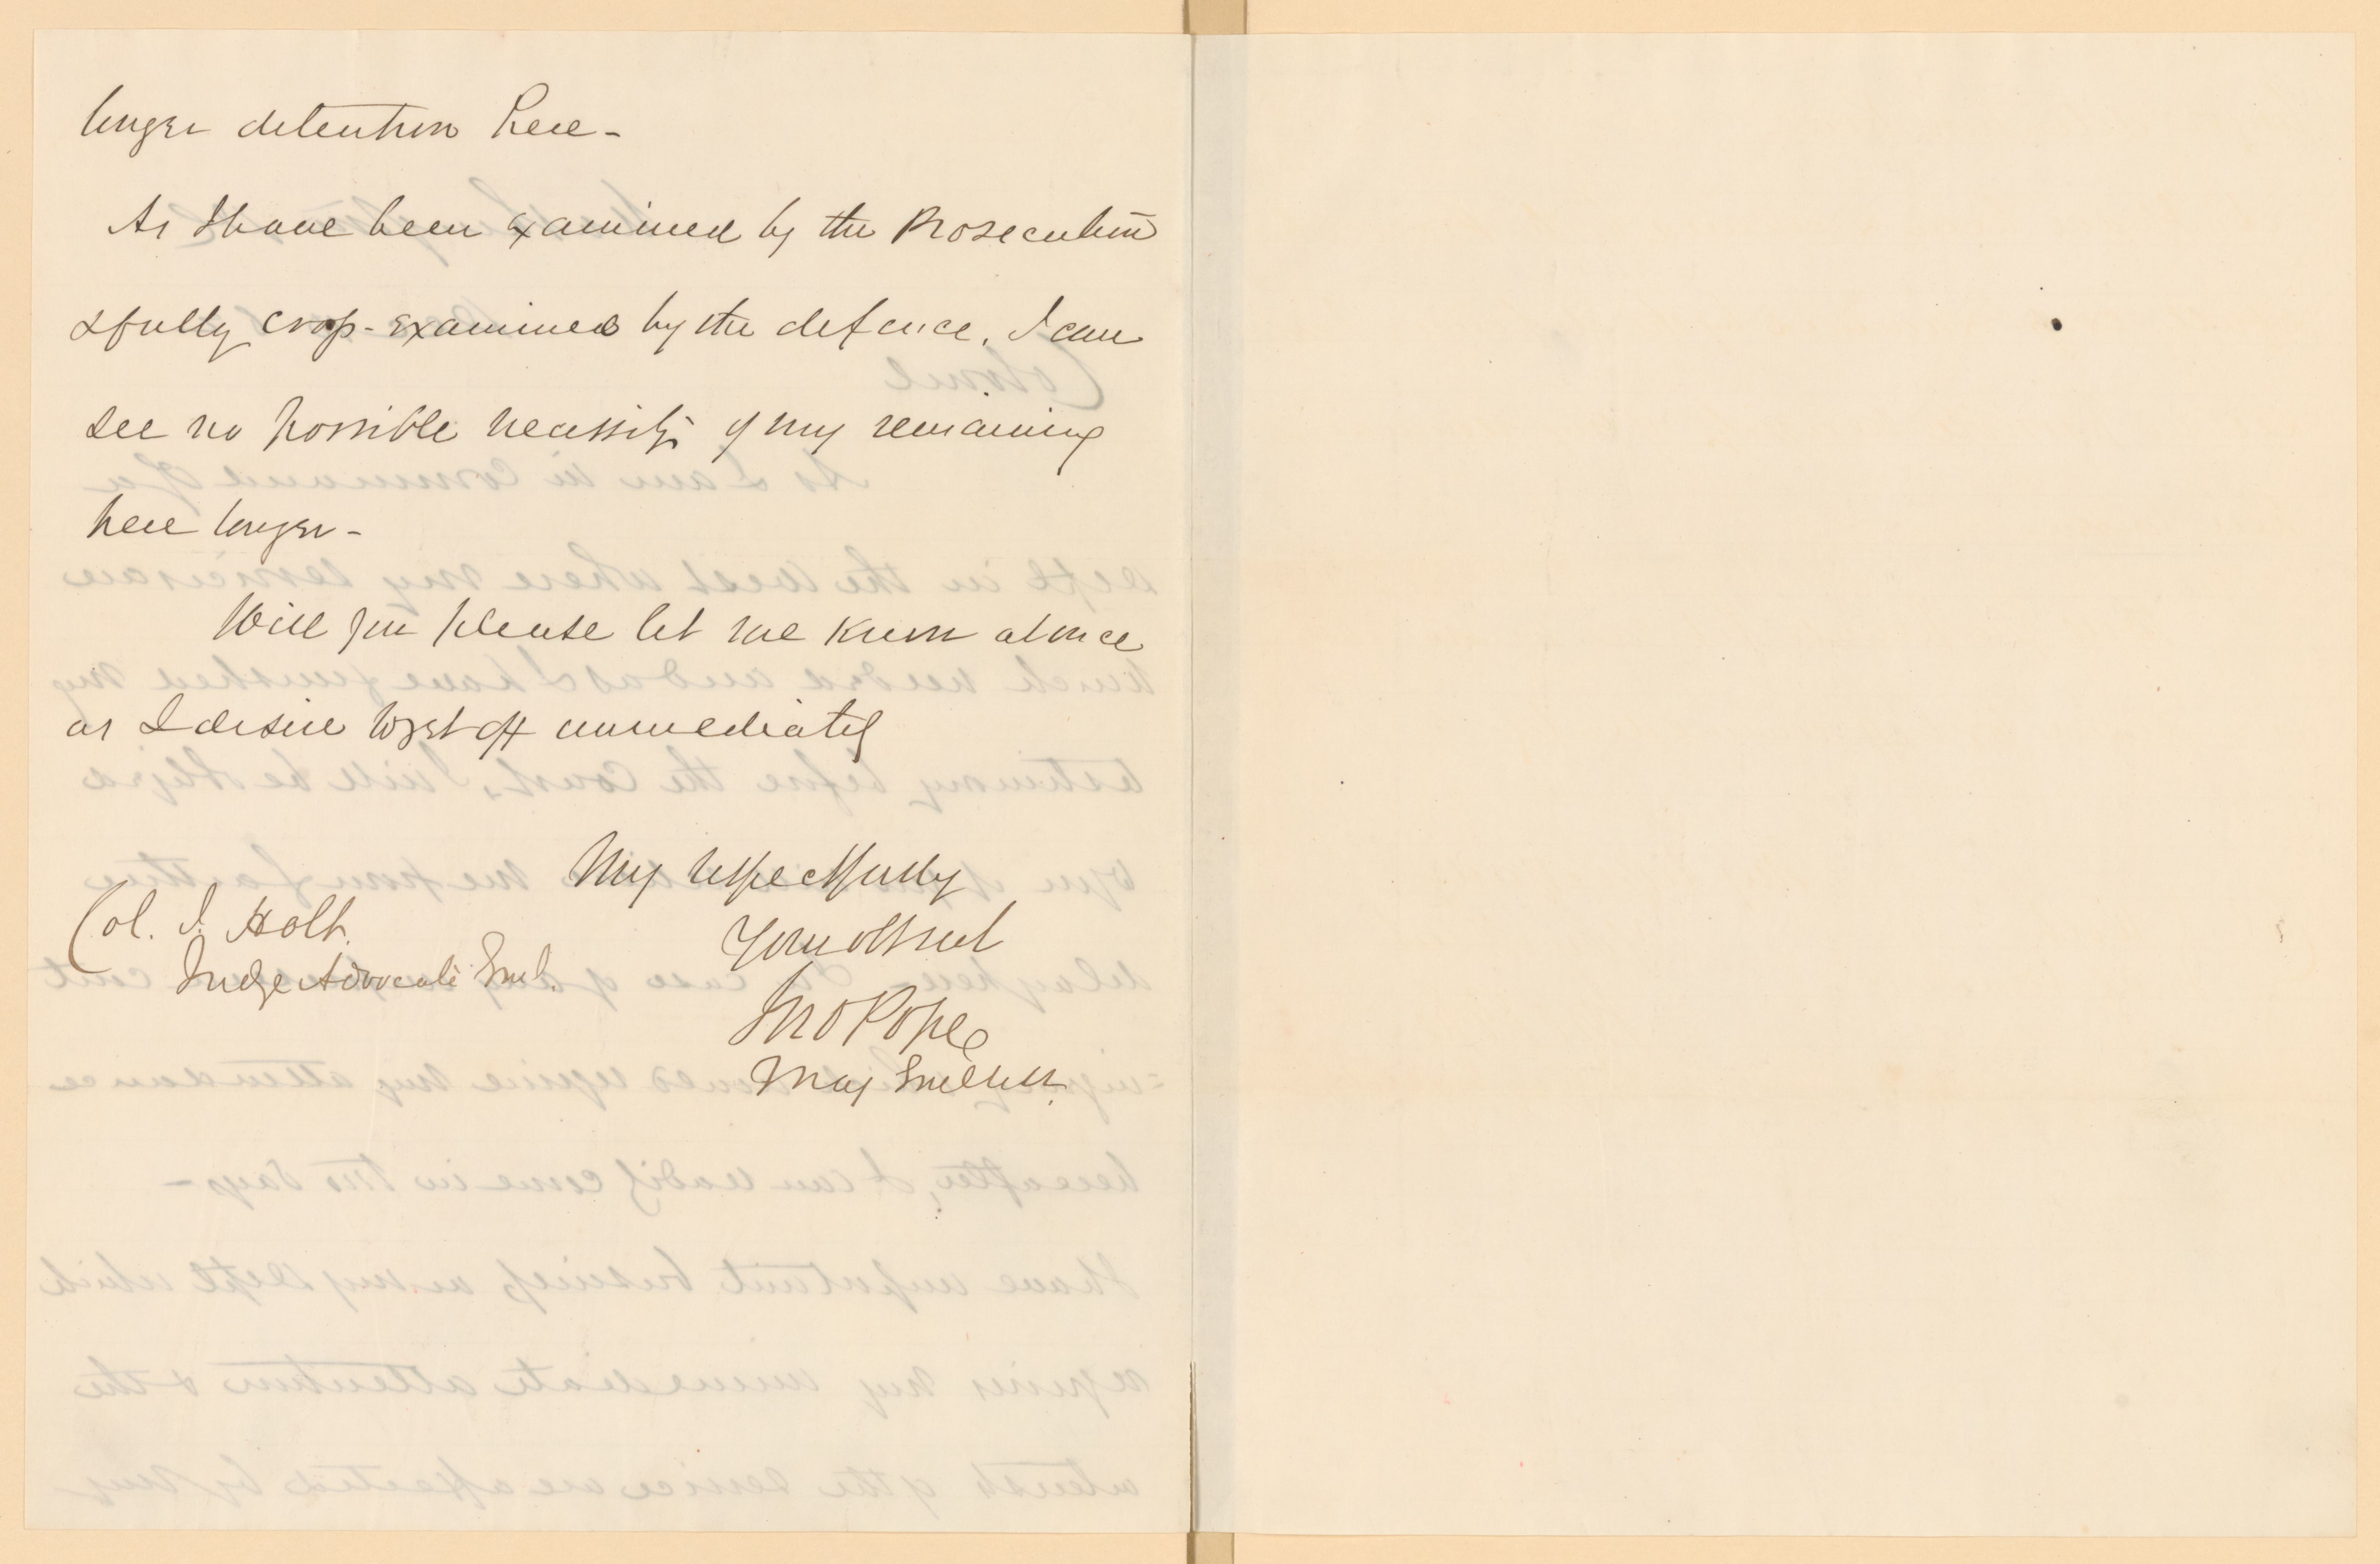 longer detention here -
As I have been examined by the Prosecution
& fully cross-examined by the defence, I can
see no possible necessity of my remaining
here longer -
Will you please let me know at once
as I desire to get off immediately
Very respectfully
Your obt svt
Jno Pope
Maj Genl
Col. J. Holt.
Judge Advocate Genl.